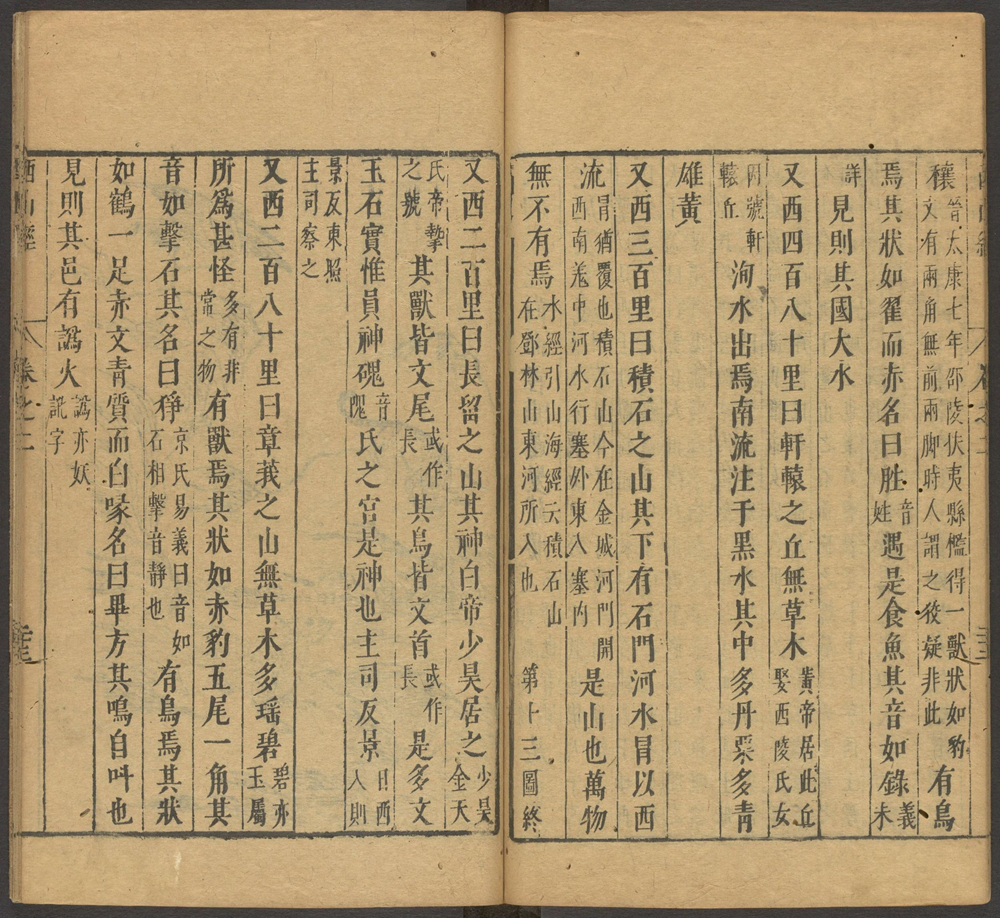 穰晉太康七年邵陵扶夷縣檻得一獸狀如豹文有兩角無前兩脚時人謂之狡疑非此有鳥
焉其狀如翟而赤名曰胜音姓遇是食魚其音如錄義未
詳見則其國大水
又西四百八十里曰軒轅之丘無草木黃帝居此丘娶西陵氏女
因號軒轅丘洵水出焉南流注于黑水其中多丹粟多青
雄黃
又西三百里曰積石之山其下有石門河水冒以西
流冒猶覆也積石山今在金城河門開西南羗中河水行塞外東入塞內是山也萬物
無不有焉水經引山海經云積石山在鄧林山東河所入也第十三圖終
又西二百里曰長留之山其神白帝少昊居之少昊金天
氏帝摯之號其獸皆文尾或作長其鳥皆文首或作長是多文
玉石實惟員神磈音隗氏之宮是神也主司反景日西入則
景反東照主司察之
又西二百八十里曰章莪之山無草木多瑤碧碧亦玉屬
所爲甚怪多有非常之物有獸焉其狀如赤豹五尾一角其
音如擊石其名曰猙京氏易義曰音如石相擊音靜也有鳥焉其狀
如鶴一足赤文青質而白喙名曰畢方其鳴自叫也
見則其邑有譌火譌亦妖訛字
西山經 卷之二